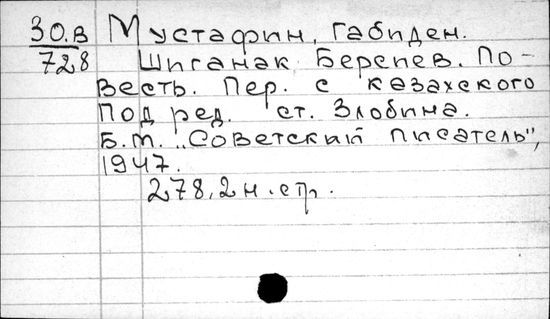 30.В Мустафин, Габиден.
728 Шиганак Берсиев. По-
весть. Пер. с казахского
Под ред. ст. Злобина.
Б.м. „Советский писатель",
1947.
278,2 н. стр.